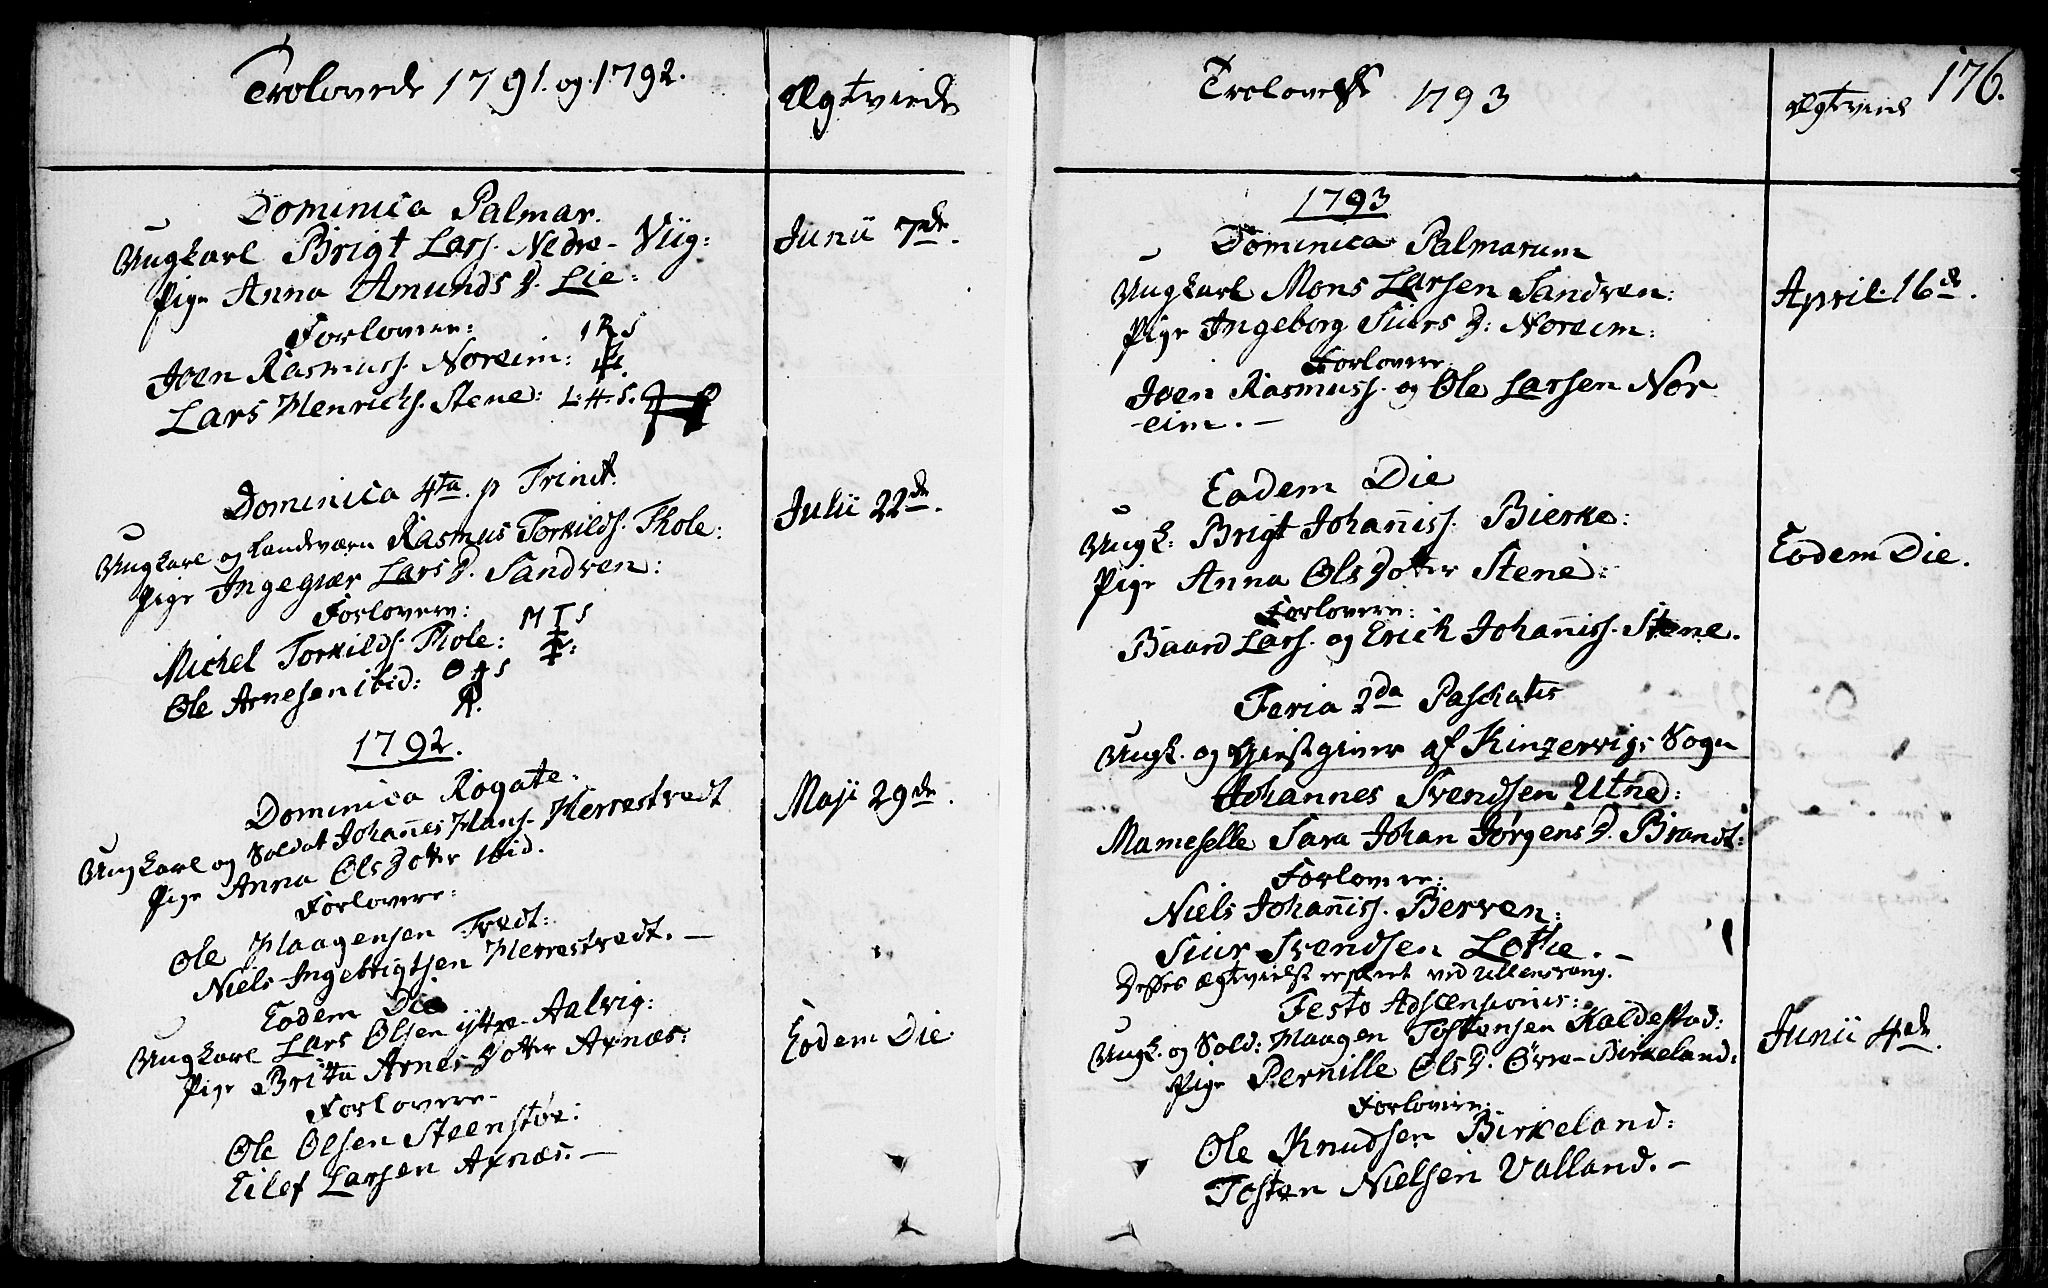 Trolovede 1791. og 1792.
Ægtviede
Dominica Palmar.
Ungkarl Brigt Lars. Nedre-Viig:
Pige Anna Amunds D. Lie:
Junii 7de.
Forlovere:
Joen Rasmuss. Noreim: I R S
Lars Henrichs. Stene: L. H. S.
Dominica 4ta. p Trinit.
Ungkarl og Landværn Rasmus Torkilds. Thole:
Pige Ingegiær Lars D. Sandven:
Julii 22de.
Forlovere:
Michel Torkilds. Thole: M T S
Ole Arnesen ibid: O A S
1792.
Dominica Rogate.
Ungkarl og Soldat Johañes Hans. Herrestvedt
Pige Anna Ols Dotter ibid.
Maji 29de.
Forlovere:
Ole Haagensen Tvedt:
Niels Ingebrigtsen Herrestvedt. —
Eodem Die
Ungkarl Lars Olsen ytre-Aalvig:
Pige Britta Arnes Dotter Axnæs:
Eodem Die
Forlovere-
Ole Olsen Steenstøe:
Eilef Larsen Axnæs. —
Trolovede 1793
Ægtviede
176.
1793
Dominica Palmarum
Ungkarl Mons Larsen Sandven:
Pige Ingeborg Siurs D: Noreim:
April. 16de.
Forlovere:
Joen Rasmuss. og Ole Larsen Nor
-eim. —
Eadem Die
Ungk: Brigt Johañiss. Bierke:
Pige Anna Ols Dotter Stene:
Eodem Die.
Forlovere:
Baard Lars. og Erich Johañiss. Stene.
Feria 2da Paschatis
Ungk. og Giestgiver af Kinzervigs Sogn
Johannes Svendsen Utne:
Mameselle Sara Johan Jørgens D. Brandt:
Forlovere:
Niels Johañiss. Berven:
Siur Svendsen Lothe. —
Disses Ægtvielse er skeet ved Ullensvang.
Festo Adscensionis:
Ungk. og Sold: Haagen Tostensen Kaldestad:
Pige Pernille Ols D. Øvre-Birkeland:
Junii 4de.
Forlovere:
Ole Knudsen Birkeland:
Tosten Nielsen Valland. —